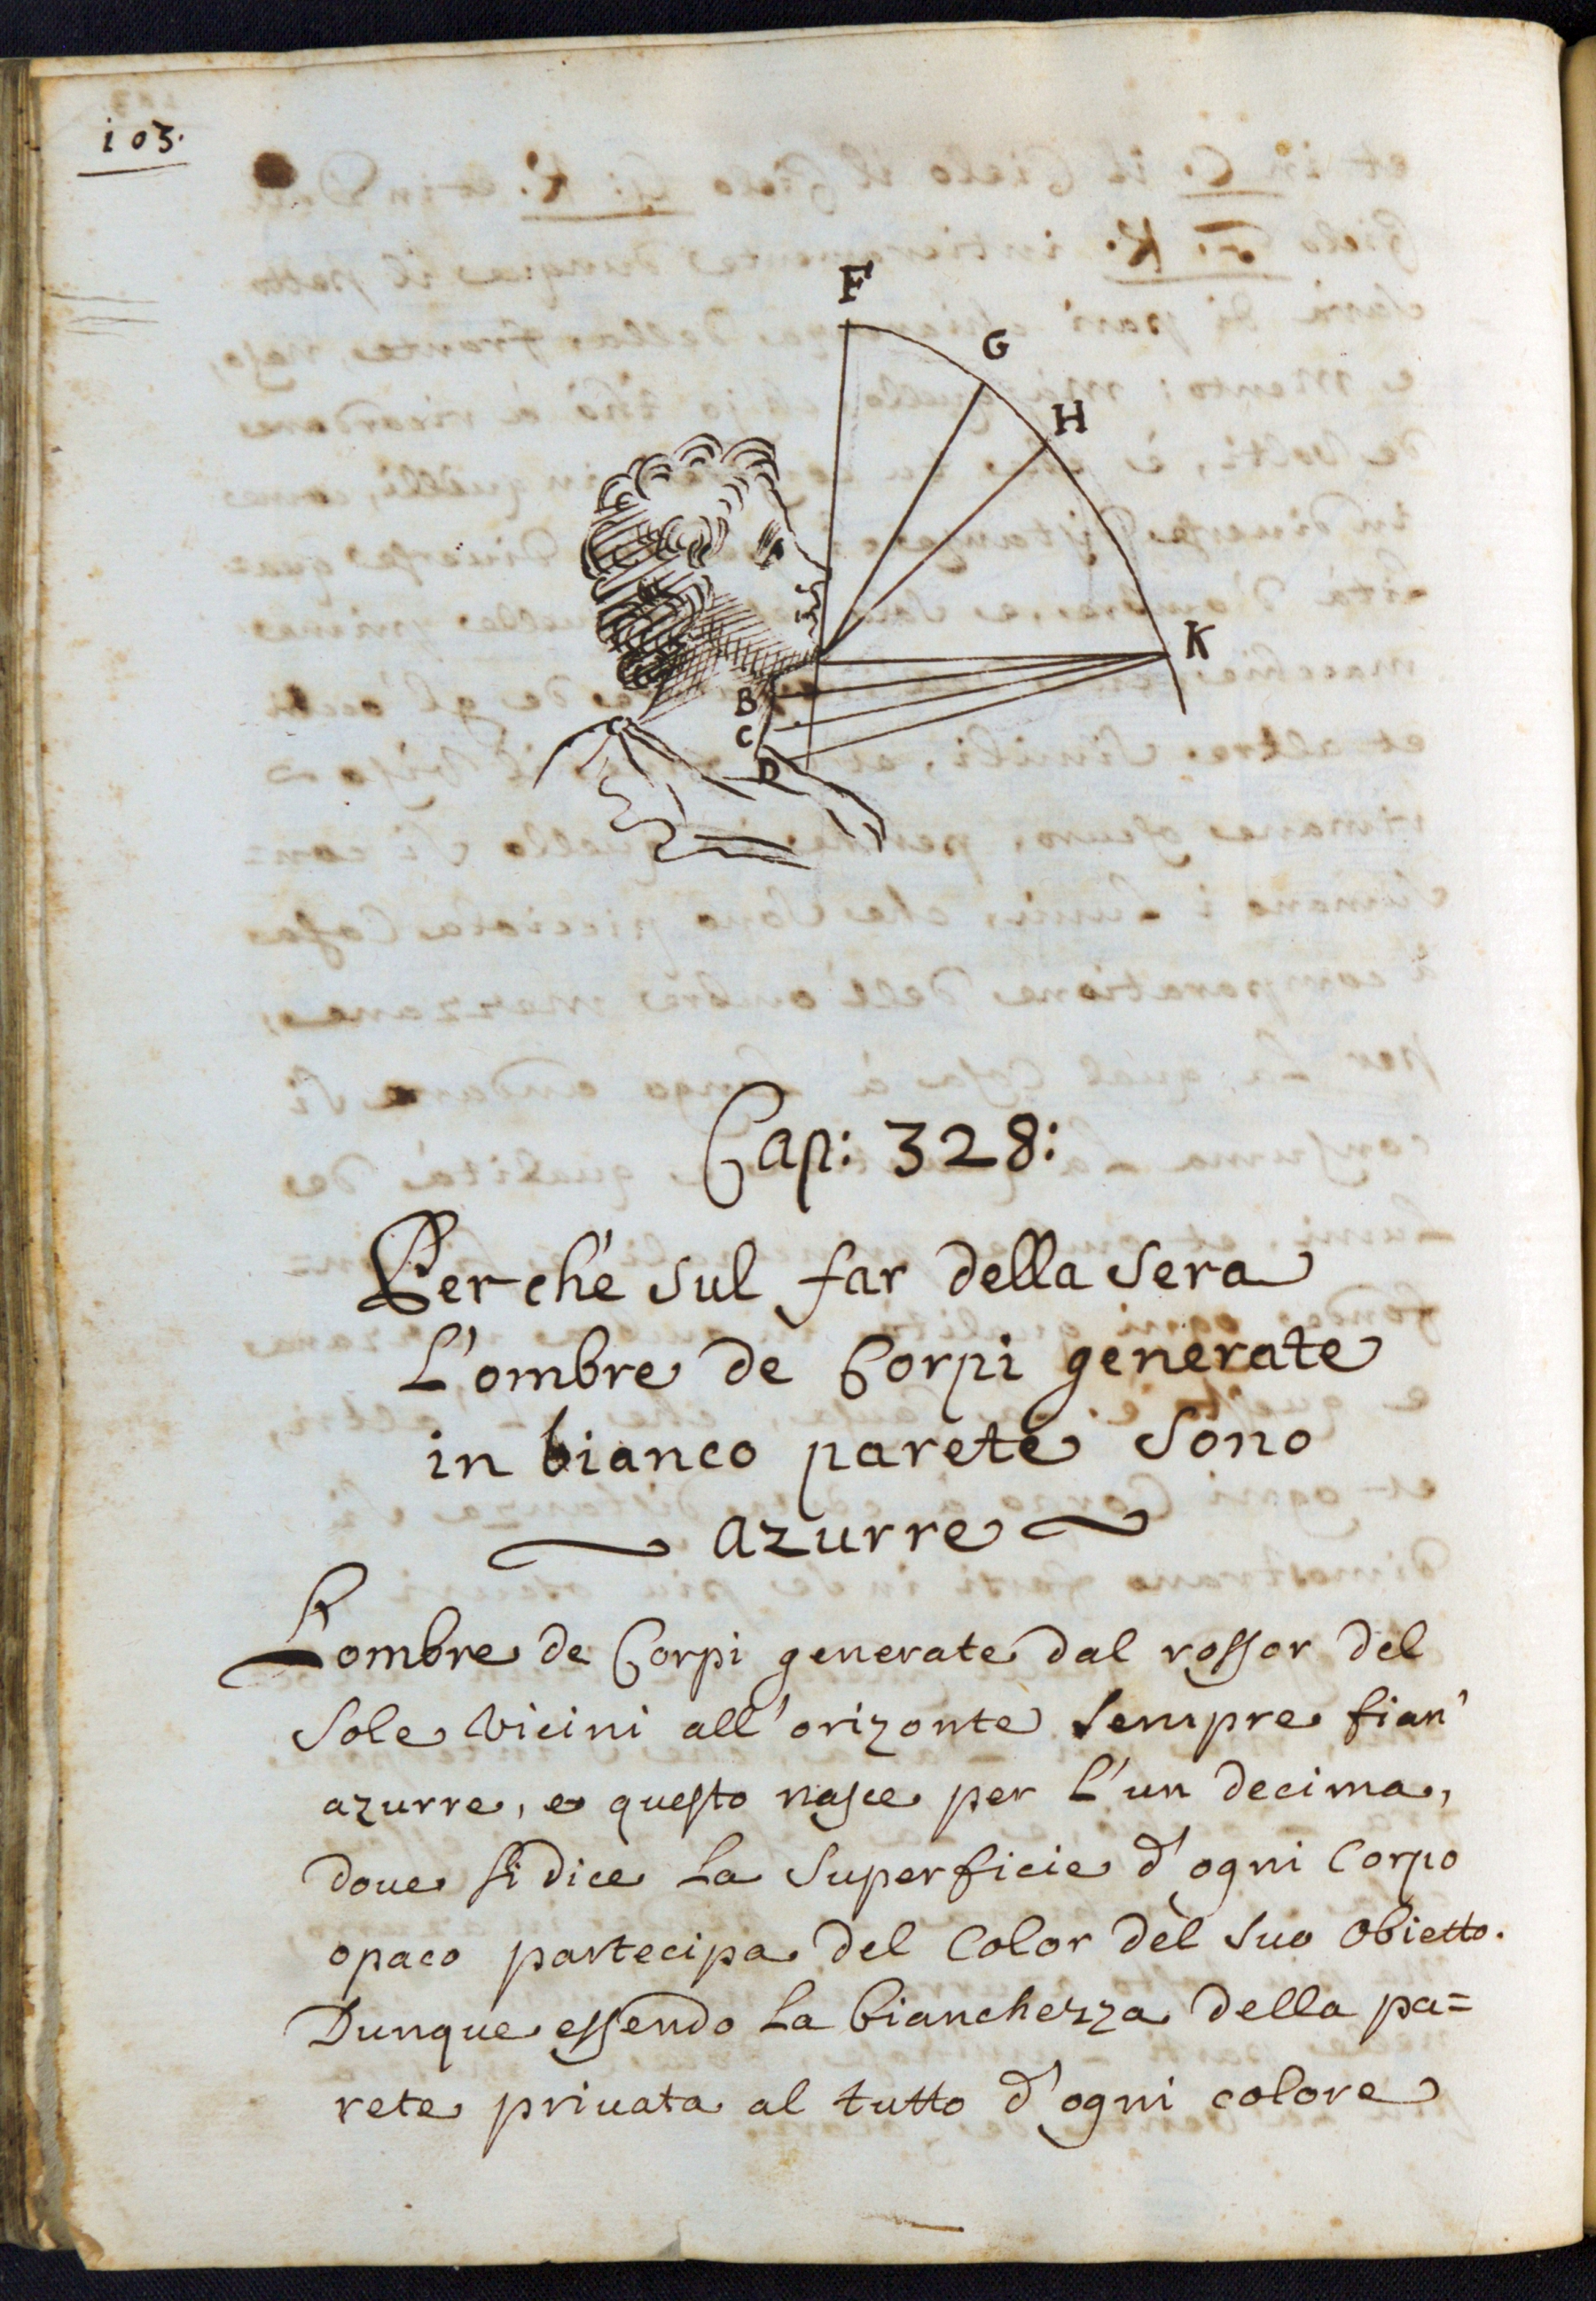 103.
F
G
H
K
B
C
D
Cap: 328:
Perché sul far della sera
L'ombre de Corpi generate
in bianco parete sono
azurre
L'ombre de Corpi generate dal rossor del
sole vicini all'orizonte sempre fian'
azurre, e questo nasce per l'un decima,
doue si dice la superficie d'ogni corpo
opaco partecipa del color del suo obietto.
Dunque essendo la bianchezza della pa=
rete priuata al tutto d'ogni colore